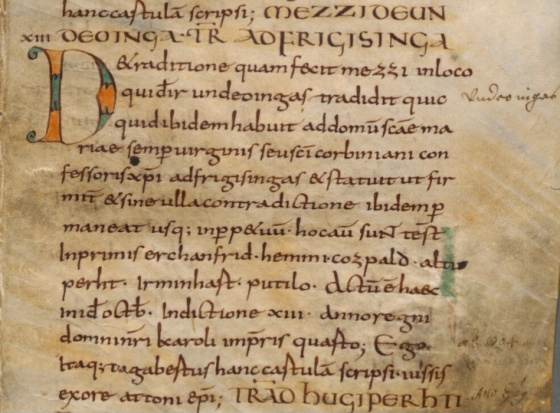 hanc castulā scripsi; MEZZI DE UN
XIII DEOINGA · TR̄ AD FRIGISINGA
De traditione quam fecit mezzi in loco
qui dr̄ undeoingas tradidit quic
quid ibidem habuit ad domū scāe ma
riae semp̄ virginis seu sc̄i corbiniani con
fessoris xp̄i ad frigisingas & statuit ut fir
mit̄ & sine ulla contradictione ibidem p̄
maneat usq; in pp&uū · hoc aū sunt test̄
Inprimis erchanfrid · hemmi · cozpald · alt
perht · Irminhast · putilo · Actū ē haec
in id̄ octb̄ · Indictione XIII · anno regni
domini nr̄i karoli impr̄is quarto; Ego
itaq; tagabertus hanc castulā scripsi · iussis
ex ore attoni ep̄i; TRAD HUGIPERHTI